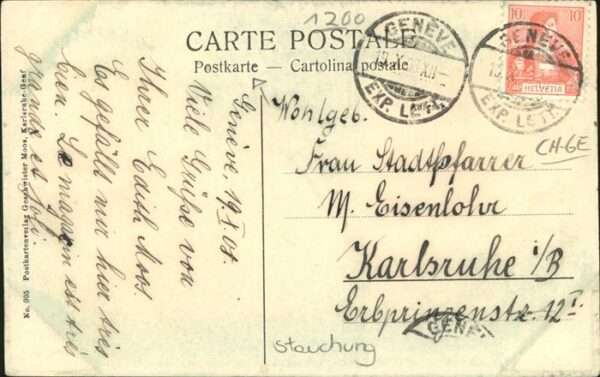 1200
CARTE POSTALE
Postkarte — Cartolina postale
GENÈVE
EXP. LETT.
GENÈVE
EXP. LETT.
10 10
HELVETIA
CH-GE
Genève, 19 X 09
Viele Grüße von
Ihrer Edith Moos.
Es gefällt mir hier très
bien. Le magasin est très
grande et joli.
Wohlgeb.
Frau Stadtpfarrer
M. Eisenlohr
Karlsruhe i/B
Erbprinzenstr. 12 I.
GENÈ
Stauchung
No. 905 Postkartenverlag Geschwister Moos, Karlsruhe